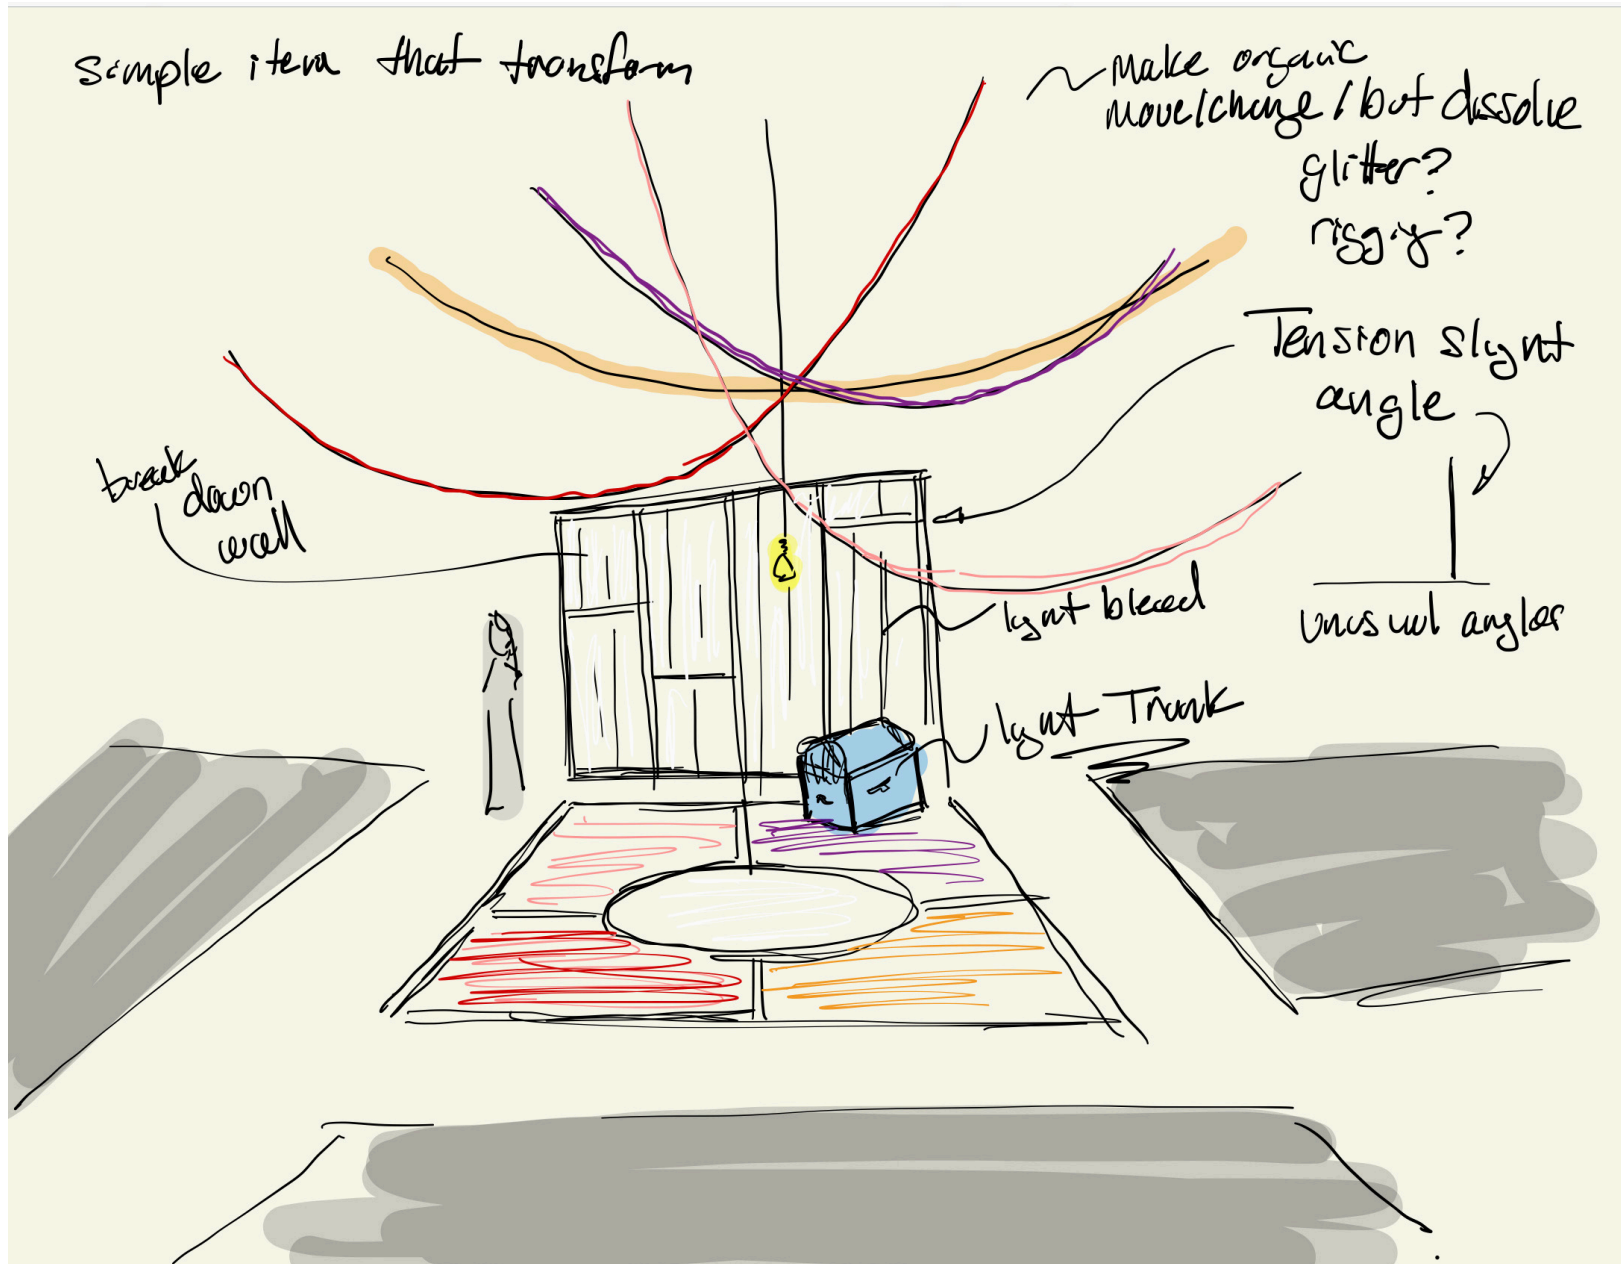 Simple item that transform
Make organic
move/change / but dissolve
glitter?
riggig?
Tension slignt
angle
break
down
wall
lignt bleed
unusual angles
lignt Trunk